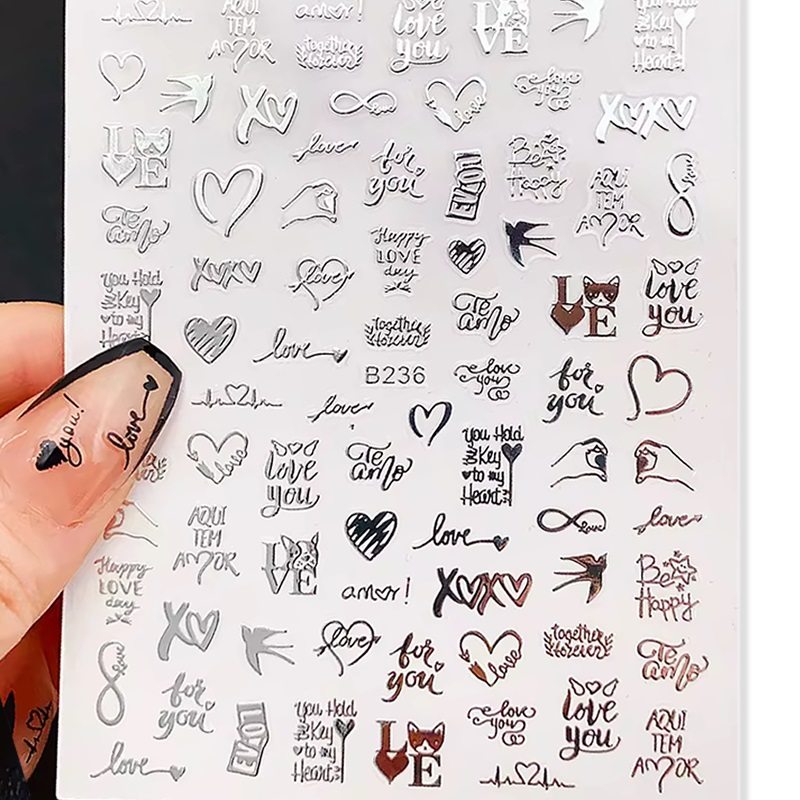 AQUI
TEM
AMOR
amor!
together
forever
love
you
LOVE
You Hold
the Key
to my
Heart
XO
love
love
love
you
XOXO
LOVE
love
for
you
LOVE
Be
Happy
AQUI
TEM
AMOR
love
Te
amo
Happy
LOVE
day
You Hold
the Key
to my
Heart
XOXO
love
Te
amo
LOVE
love
you
love
together
forever
B236
love
you
for
you
love
you!
love
love
love
you
Te
amo
You Hold
the Key
to my
Heart
AQUI
TEM
AMOR
love
love
love
Happy
LOVE
day
LOVE
amor!
XOXO
Be
Happy
XO
love
for
you
love
together
forever
Te
amo
love
for
you
LOVE
You Hold
the Key
to my
Heart
LOVE
love
you
love
you
AQUI
TEM
AMOR
love